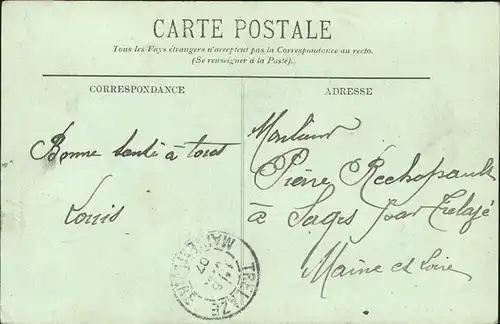 CARTE POSTALE
Tous les Pays étrangers n'acceptent pas la Correspondance au recto.
(Se renseigner à la Poste).
CORRESPONDANCE
ADRESSE
Bonne santé à tous
Louis
Monsieur
Pierre
à Sages par Trelazé
Maine et Loire
TRELAZE
MAINE ET LOIRE
07